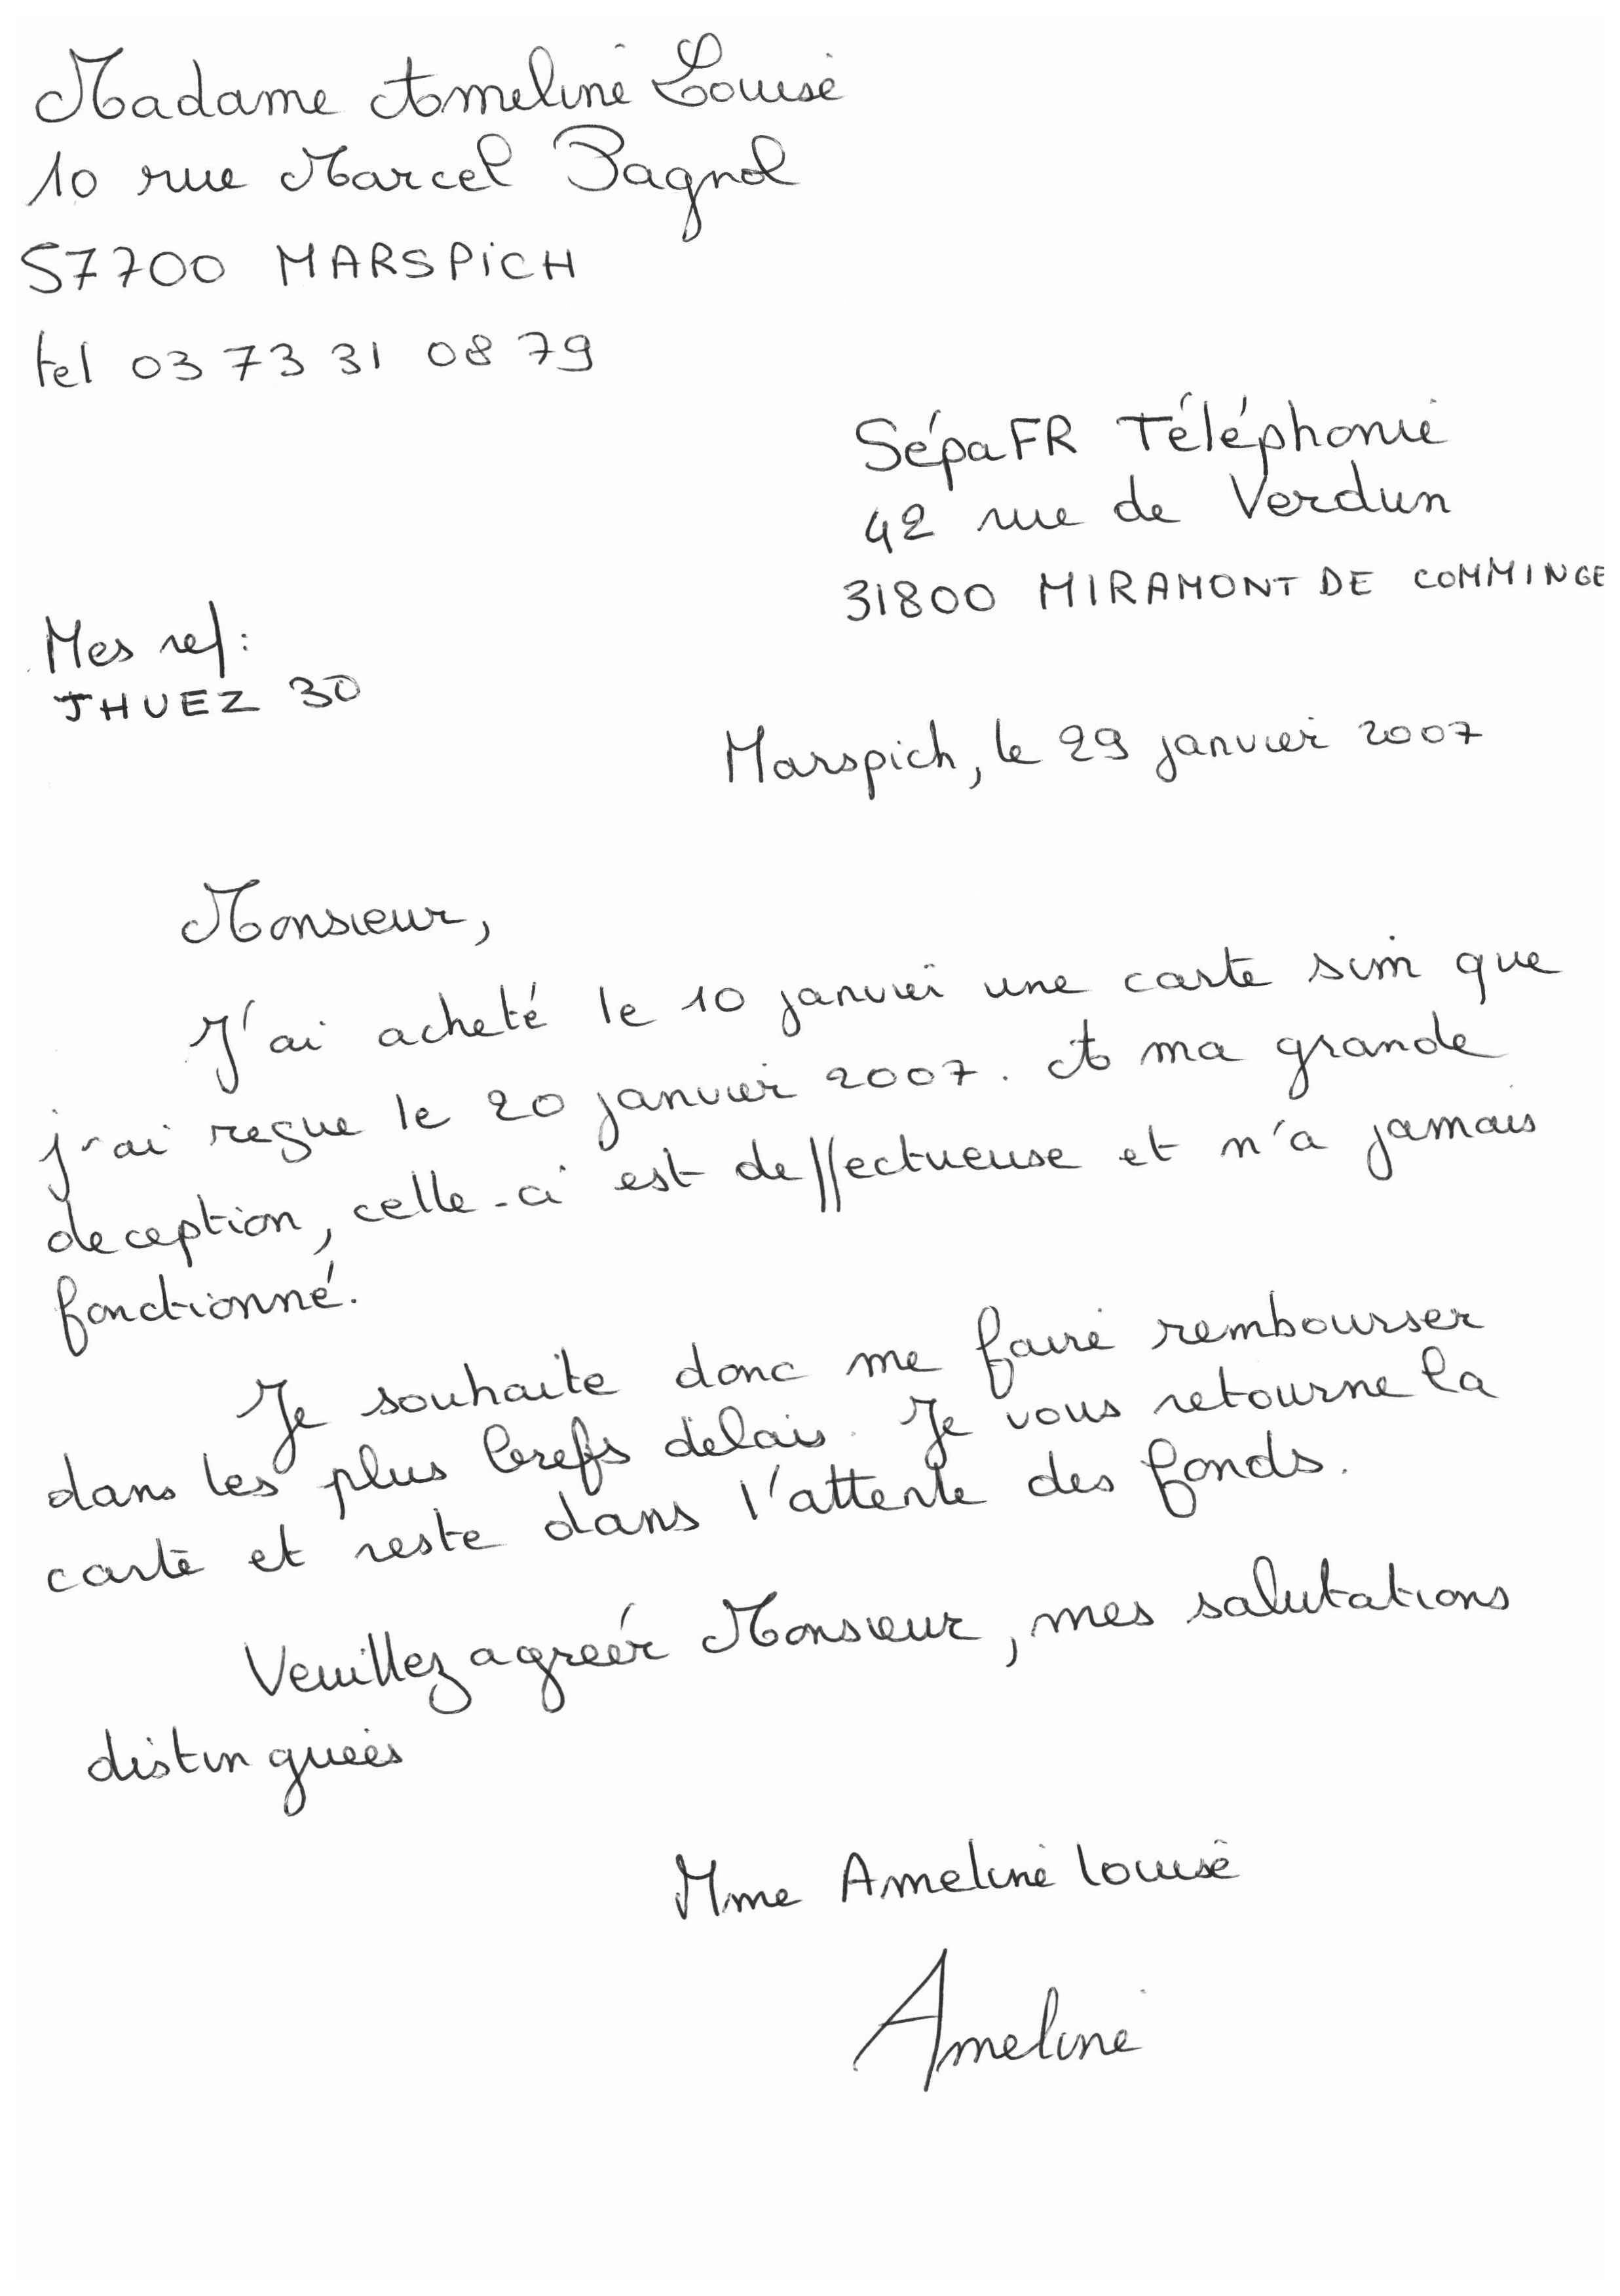 Madame Ameline Louise
10 rue Marcel Pagnol
57700 MARSPiCH
tel 03 73 31 08 79
SépaFR Téléphonie
42 rue de Verdun
31800 MIRAMONT DE COMMINGE
Mes ref:
JHUEZ 30
Marspich, le 29 janvier 2007
Monsieur,
J'ai acheté le 10 janvier une carte sim que
j'ai reçue le 20 janvier 2007. A ma grande
deception, celle-ci est deffectueuse et n'a jamais
fonctionné.
Je souhaite donc me faire rembourser
dans les plus brefs délais. Je vous retourne la
carte et reste dans l'attente des fonds.
Veuillez agréer Monsieur, mes salutations
distinguées
Mme Ameline Louise
Ameline